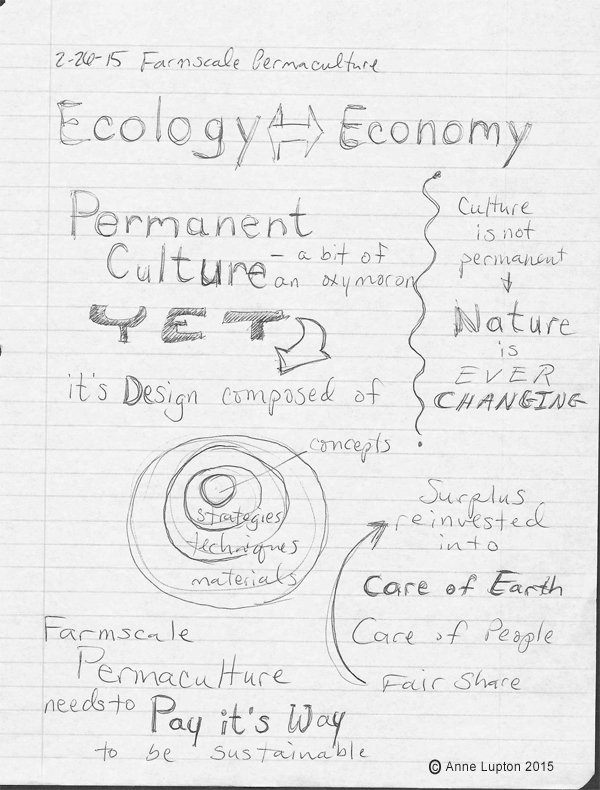 2-26-15 Farmscale Permaculture
Ecology Economy
Permanent
Culture - a bit of
an oxymoron
YET
it's Design composed of
concepts
strategies
techniques
materials
Culture
is not
permanent
Nature
is
EVER
CHANGING
Surplus
reinvested
into
Care of Earth
Care of People
Fair Share
Farmscale
Permaculture
needs to Pay it's Way
to be sustainable
© Anne Lupton 2015